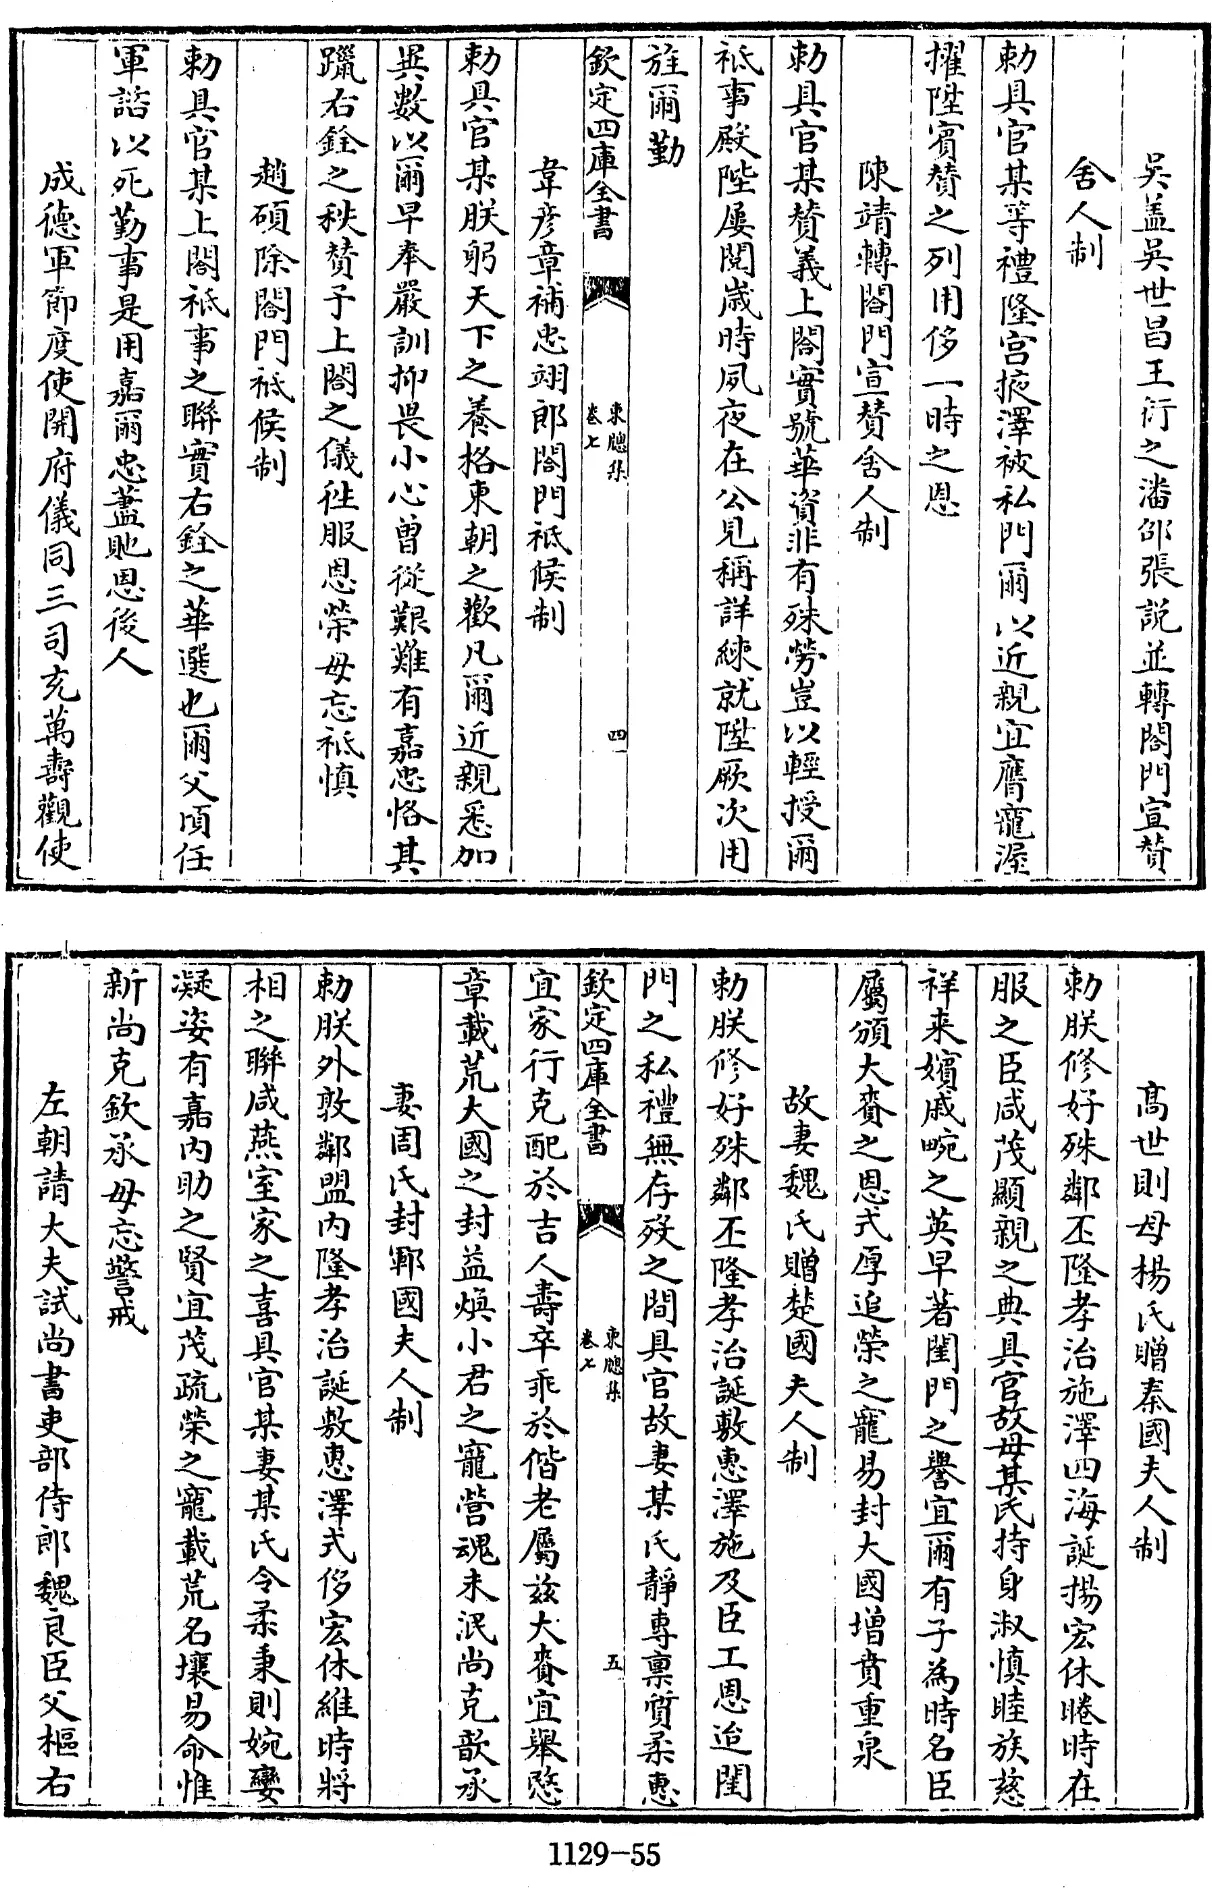 吳盖吳世昌王衍之潘邵張説並轉閤門宣賛
舍人制
勅具官某等禮隆宫掖澤被私門爾以近親宜膺寵渥
擢陞賓賛之列用侈一時之恩
陳靖轉閤門宣賛舍人制
勅具官某賛義上閤實號華資非有殊勞豈以輕授爾
祗事殿陛屢閲歲時夙夜在公見稱詳練就陞厥次用
旌爾勤
欽定四庫全書
東牕集
卷七
四
韋彦章補忠翊郎閤門祗候制
勅具官某朕躬天下之養格東朝之歡凡爾近親悉加
異數以爾早奉嚴訓抑畏小心曾從艱難有嘉忠恪其
躐右銓之秩賛予上閤之儀徃服恩榮毋忘祗慎
趙碩除閤門祗候制
勅具官某上閤祗事之聯實右銓之華選也爾父頃任
軍諮以死勤事是用嘉爾忠藎貤恩後人
成德軍節度使開府儀同三司充萬壽觀使
高世則母楊氏贈秦國夫人制
勅朕修好殊鄰丕隆孝治施澤四海誕揚宏休睠時在
服之臣咸茂顯親之典具官故母某氏持身淑慎睦族慈
祥来嬪戚畹之英早著閨門之譽宜爾有子為時名臣
屬頒大賚之恩式厚追榮之寵易封大國增賁重泉
故妻魏氏贈楚國夫人制
勅朕修好殊鄰丕隆孝治誕敷惠澤施及臣工恩迨閨
門之私禮無存歿之間具官故妻某氏靜專禀質柔惠
欽定四庫全書
東牕集
卷七
五
宜家行克配於吉人壽卒乖於偕老屬兹大賚宜舉愍
章載荒大國之封益煥小君之寵營魂未泯尚克歆承
妻周氏封鄆國夫人制
勅朕外敦鄰盟内隆孝治誕敷惠澤式侈宏休維時將
相之聯咸燕室家之喜具官某妻某氏令柔秉則婉孌
凝姿有嘉内助之賢宜茂疏榮之寵載荒名壤易命惟
新尚克欽承毋忘警戒
左朝請大夫試尚書吏部侍郎魏良臣父樞右
1129-55